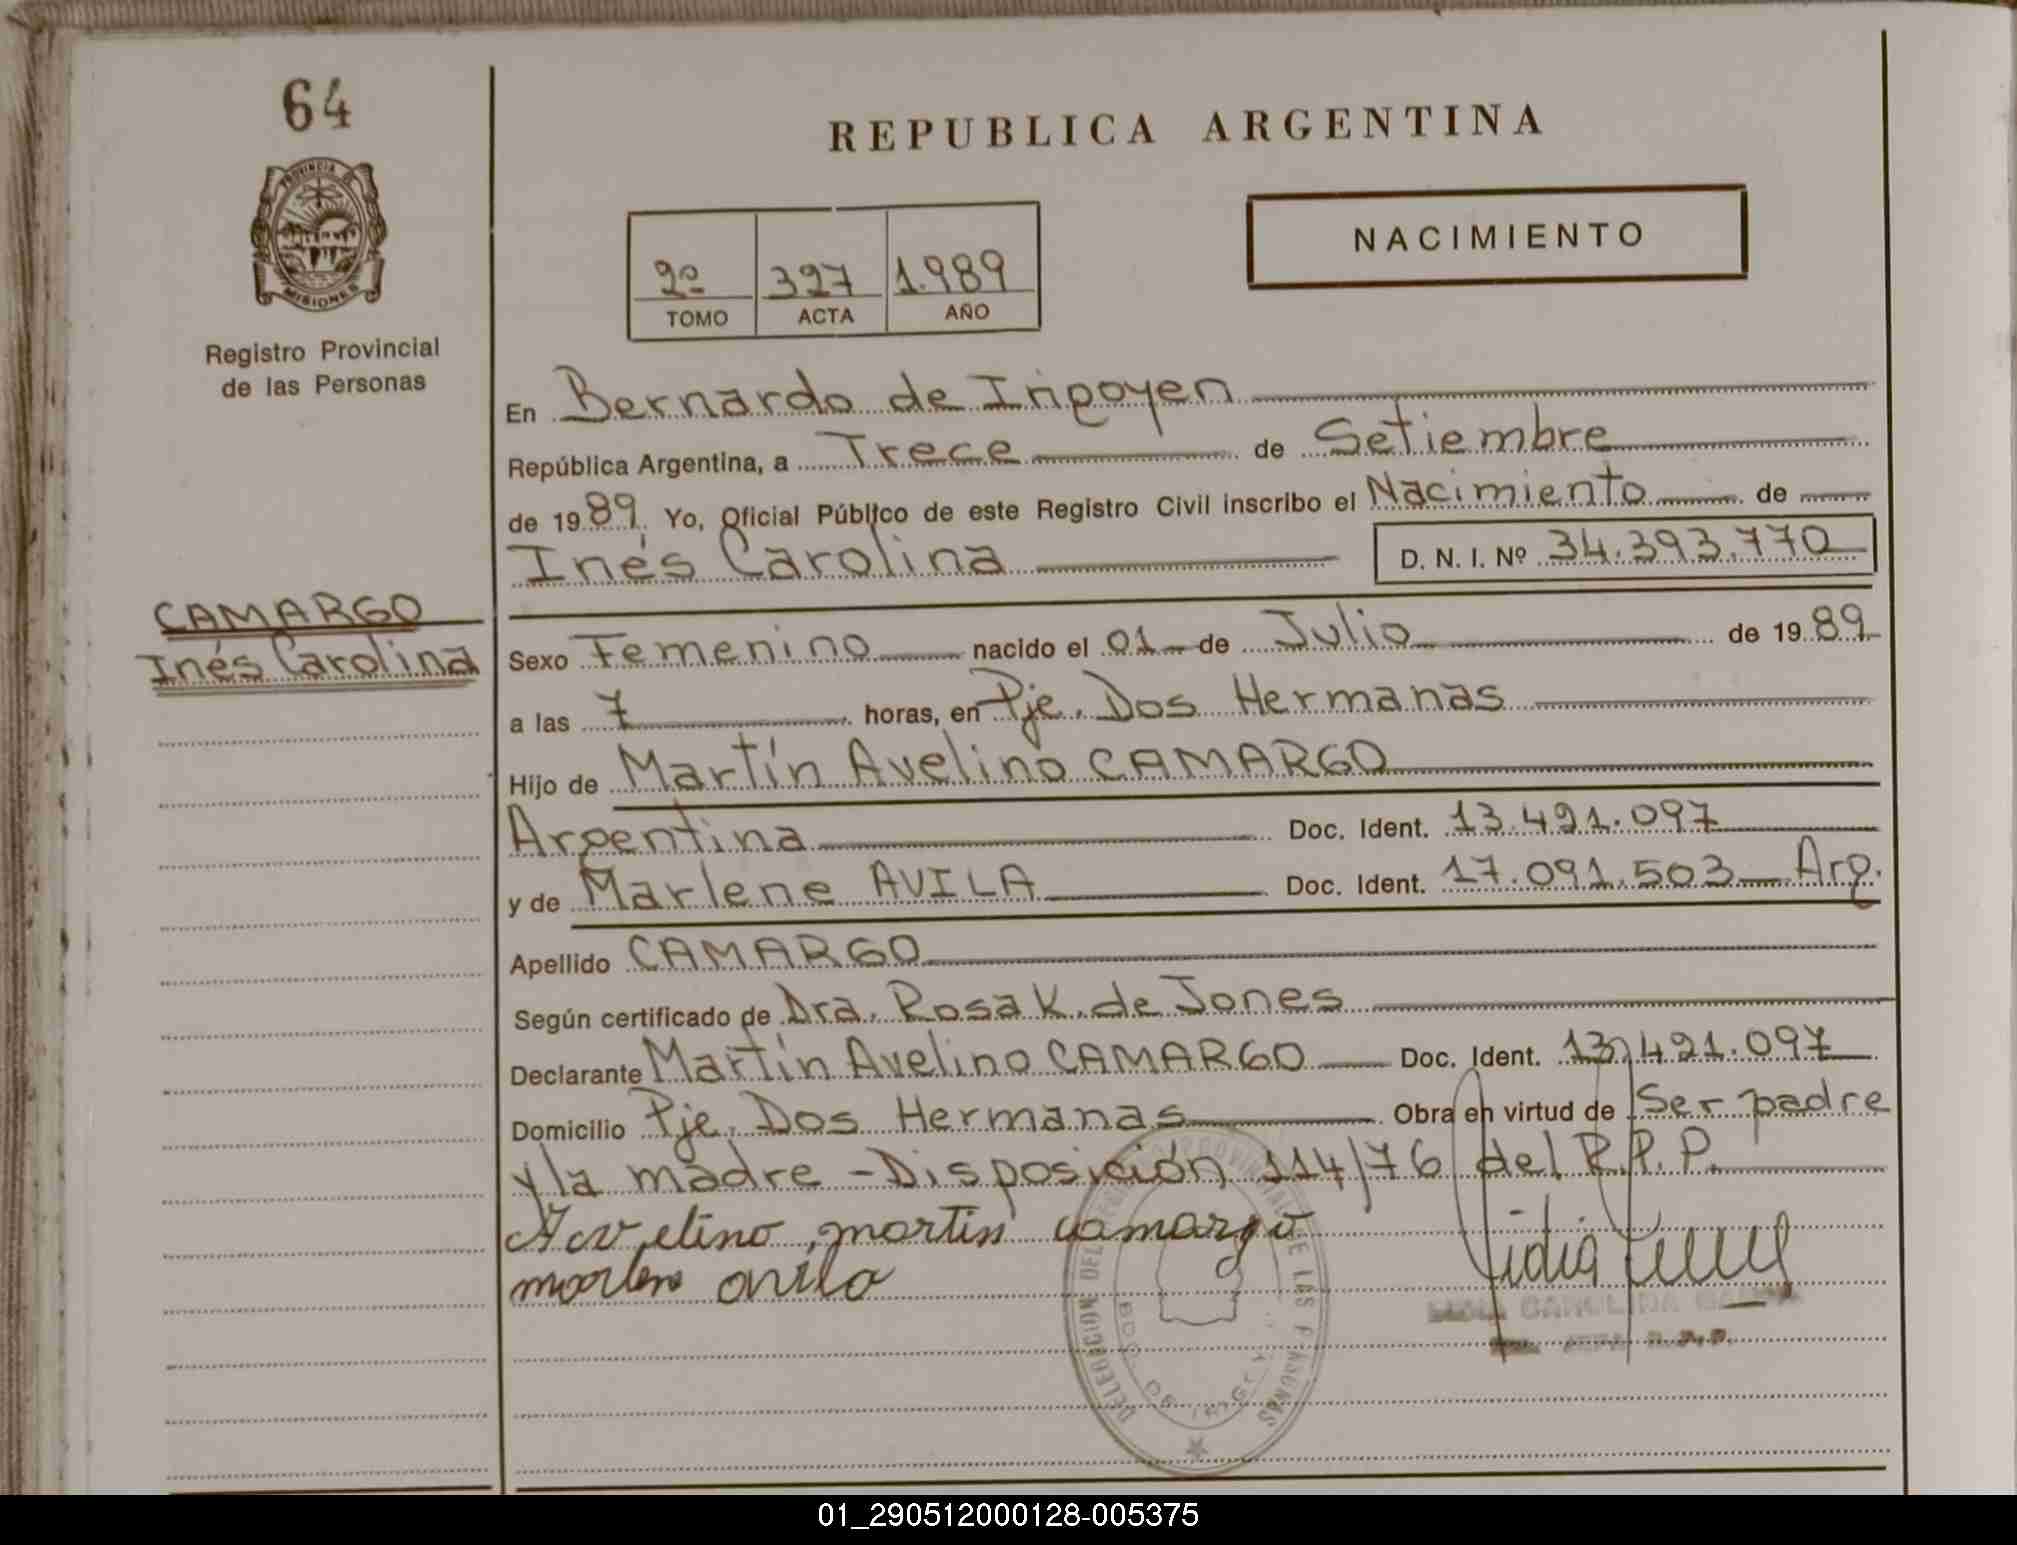 64
PROVINCIA DE
MISIONES
Registro Provincial
de las Personas
CAMARGO
Inés Carolina
REPUBLICA ARGENTINA
NACIMIENTO
2º 327 1.989
TOMO ACTA AÑO
En Bernardo de Irigoyen
República Argentina, a Trece de Setiembre
de 1989 Yo, Oficial Público de este Registro Civil inscribo el Nacimiento de
Inés Carolina D. N. I. Nº 34.393.770
Sexo Femenino nacido el 01 de Julio de 1989
a las 7 horas, en Pje. Dos Hermanas
Hijo de Martín Avelino CAMARGO
Argentina Doc. Ident. 13.421.097
y de Marlene AVILA Doc. Ident. 17.091.503 Arg.
Apellido CAMARGO
Según certificado de Dra. Rosa K. de Jones
Declarante Martín Avelino CAMARGO Doc. Ident. 13.421.097
Domicilio Pje. Dos Hermanas Obra en virtud de Ser padre
y la madre - Disposición 114/76 del R.P.P.
Avelino martin camargo
marlen avila
Lidia
CAROLINA
DELEGACION DEL REGISTRO PROVINCIAL DE LAS PERSONAS
01_290512000128-005375